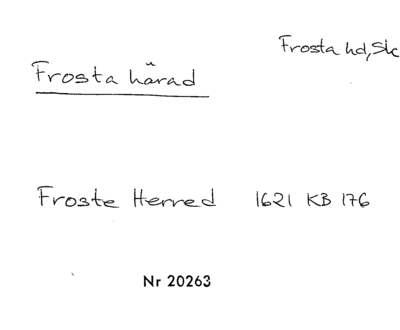 Frosta hd, Sk
Frosta härad
Froste Herred 1621 KB 176
Nr 20263